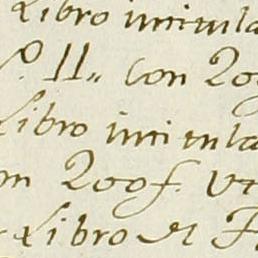 Libro intitula
Nº. II,, con 20
Libro intitula
on 200 f. Ut
Libro di F